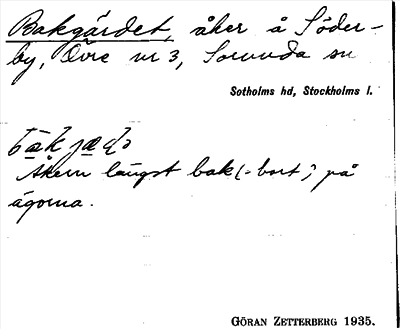 Bakgärdet, åker å Söder-
by, Övre nr 3, Sorunda sn
Sotholms hd, Stockholms l.
Åkern längst bak (-bort) på
ägorna.
GÖRAN ZETTERBERG 1935.